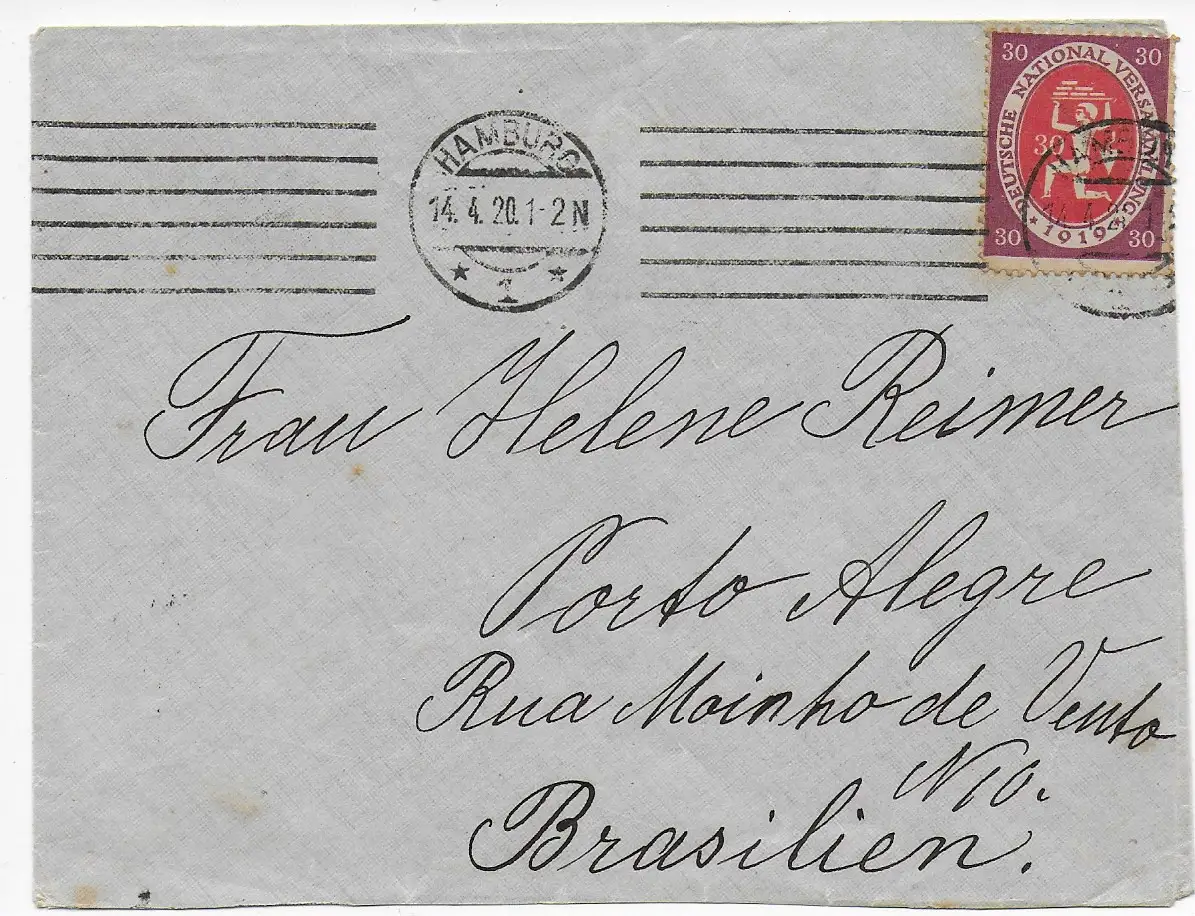 HAMBURG
14. 4. 20. 1-2 N
* 1 *
30 30
DEUTSCHE NATIONAL VERSAMMLUNG
30
* 1919 *
30 30
14. 4. 20. 1
Frau Helene Reimer
Porto Alegre
Rua Moinho de Vento
N 10.
Brasilien.